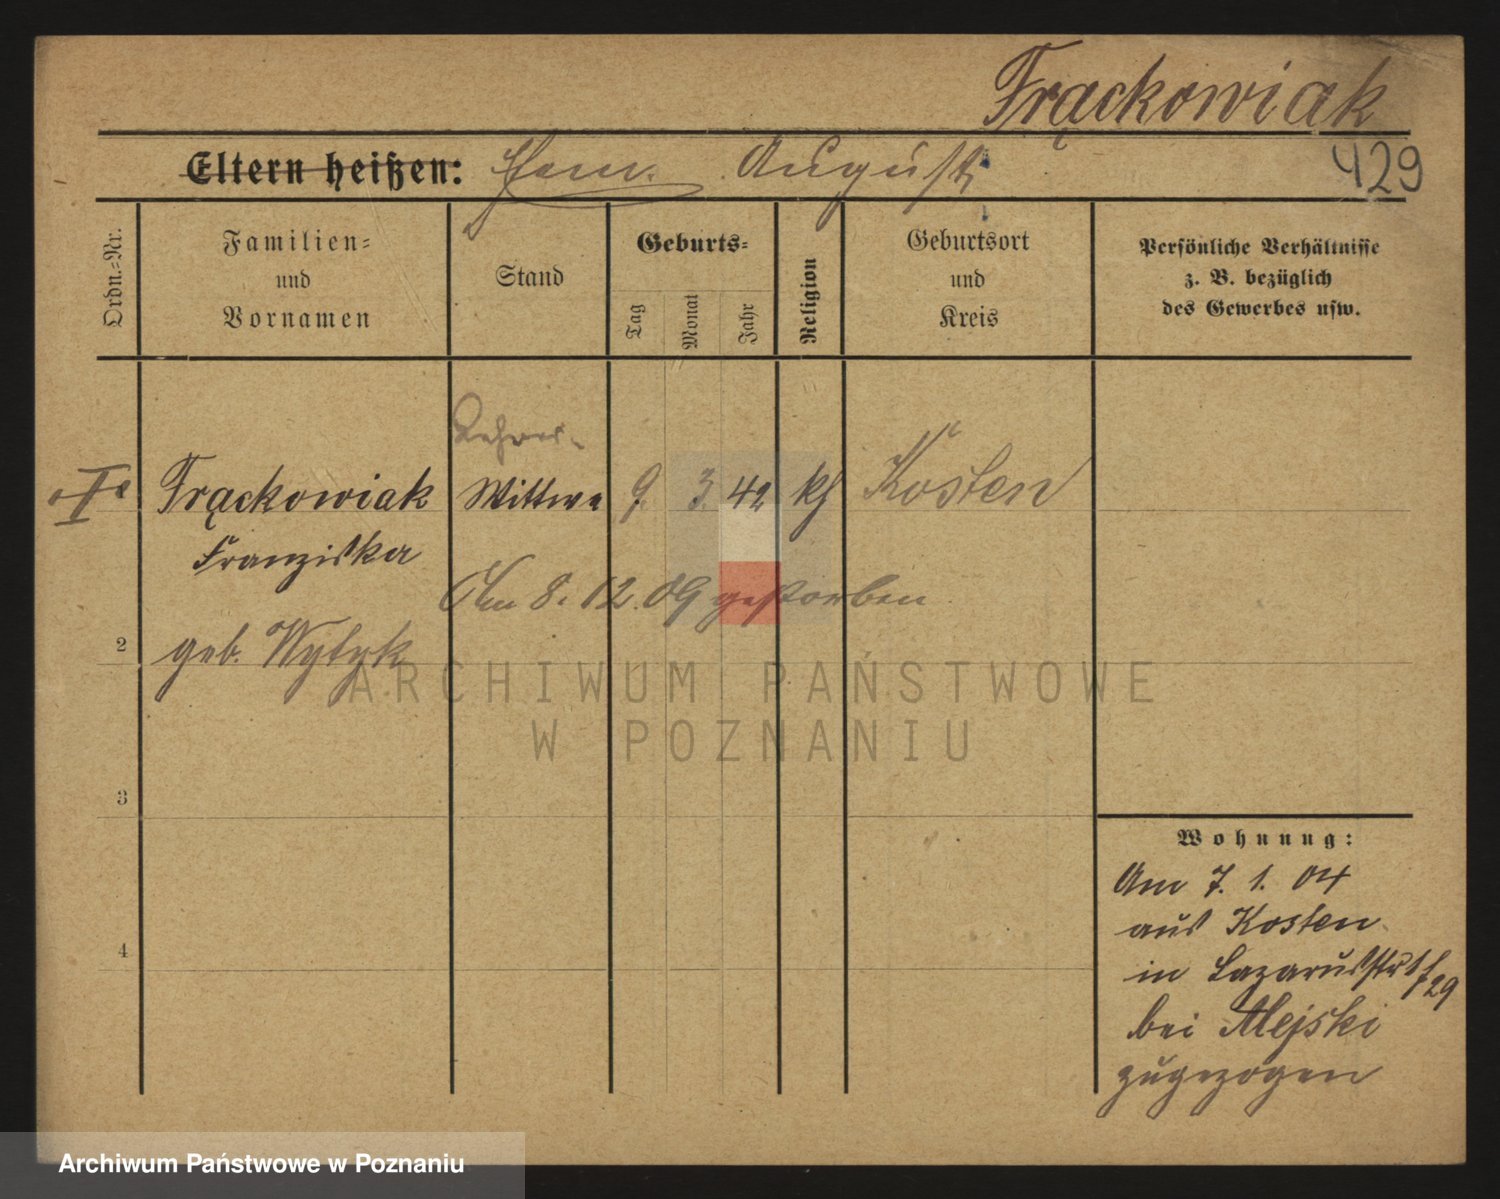 Frąckowiak
Eltern heißen: August
429
Ordn.-Nr.
Familien-
und
Vornamen
Stand
Geburts-
Tag
Monat
Jahr
Religion
Geburtsort
und
Kreis
Persönliche Verhältnisse
z. B. bezüglich
des Gewerbes usw.
Lehrer-
I Frąckowiak Wittwe 9. 3. 42 kth Kosten
Franziska
Am 8. 12. 09 gestorben
2 geb.
ARCHIWUM PAŃSTWOWE
W POZNANIU
3
Wohnung:
Am 7. 1. 04
aus Kosten
in Lazarusstr 29
4
bei Alejski
zugezogen
Archiwum Państwowe w Poznaniu